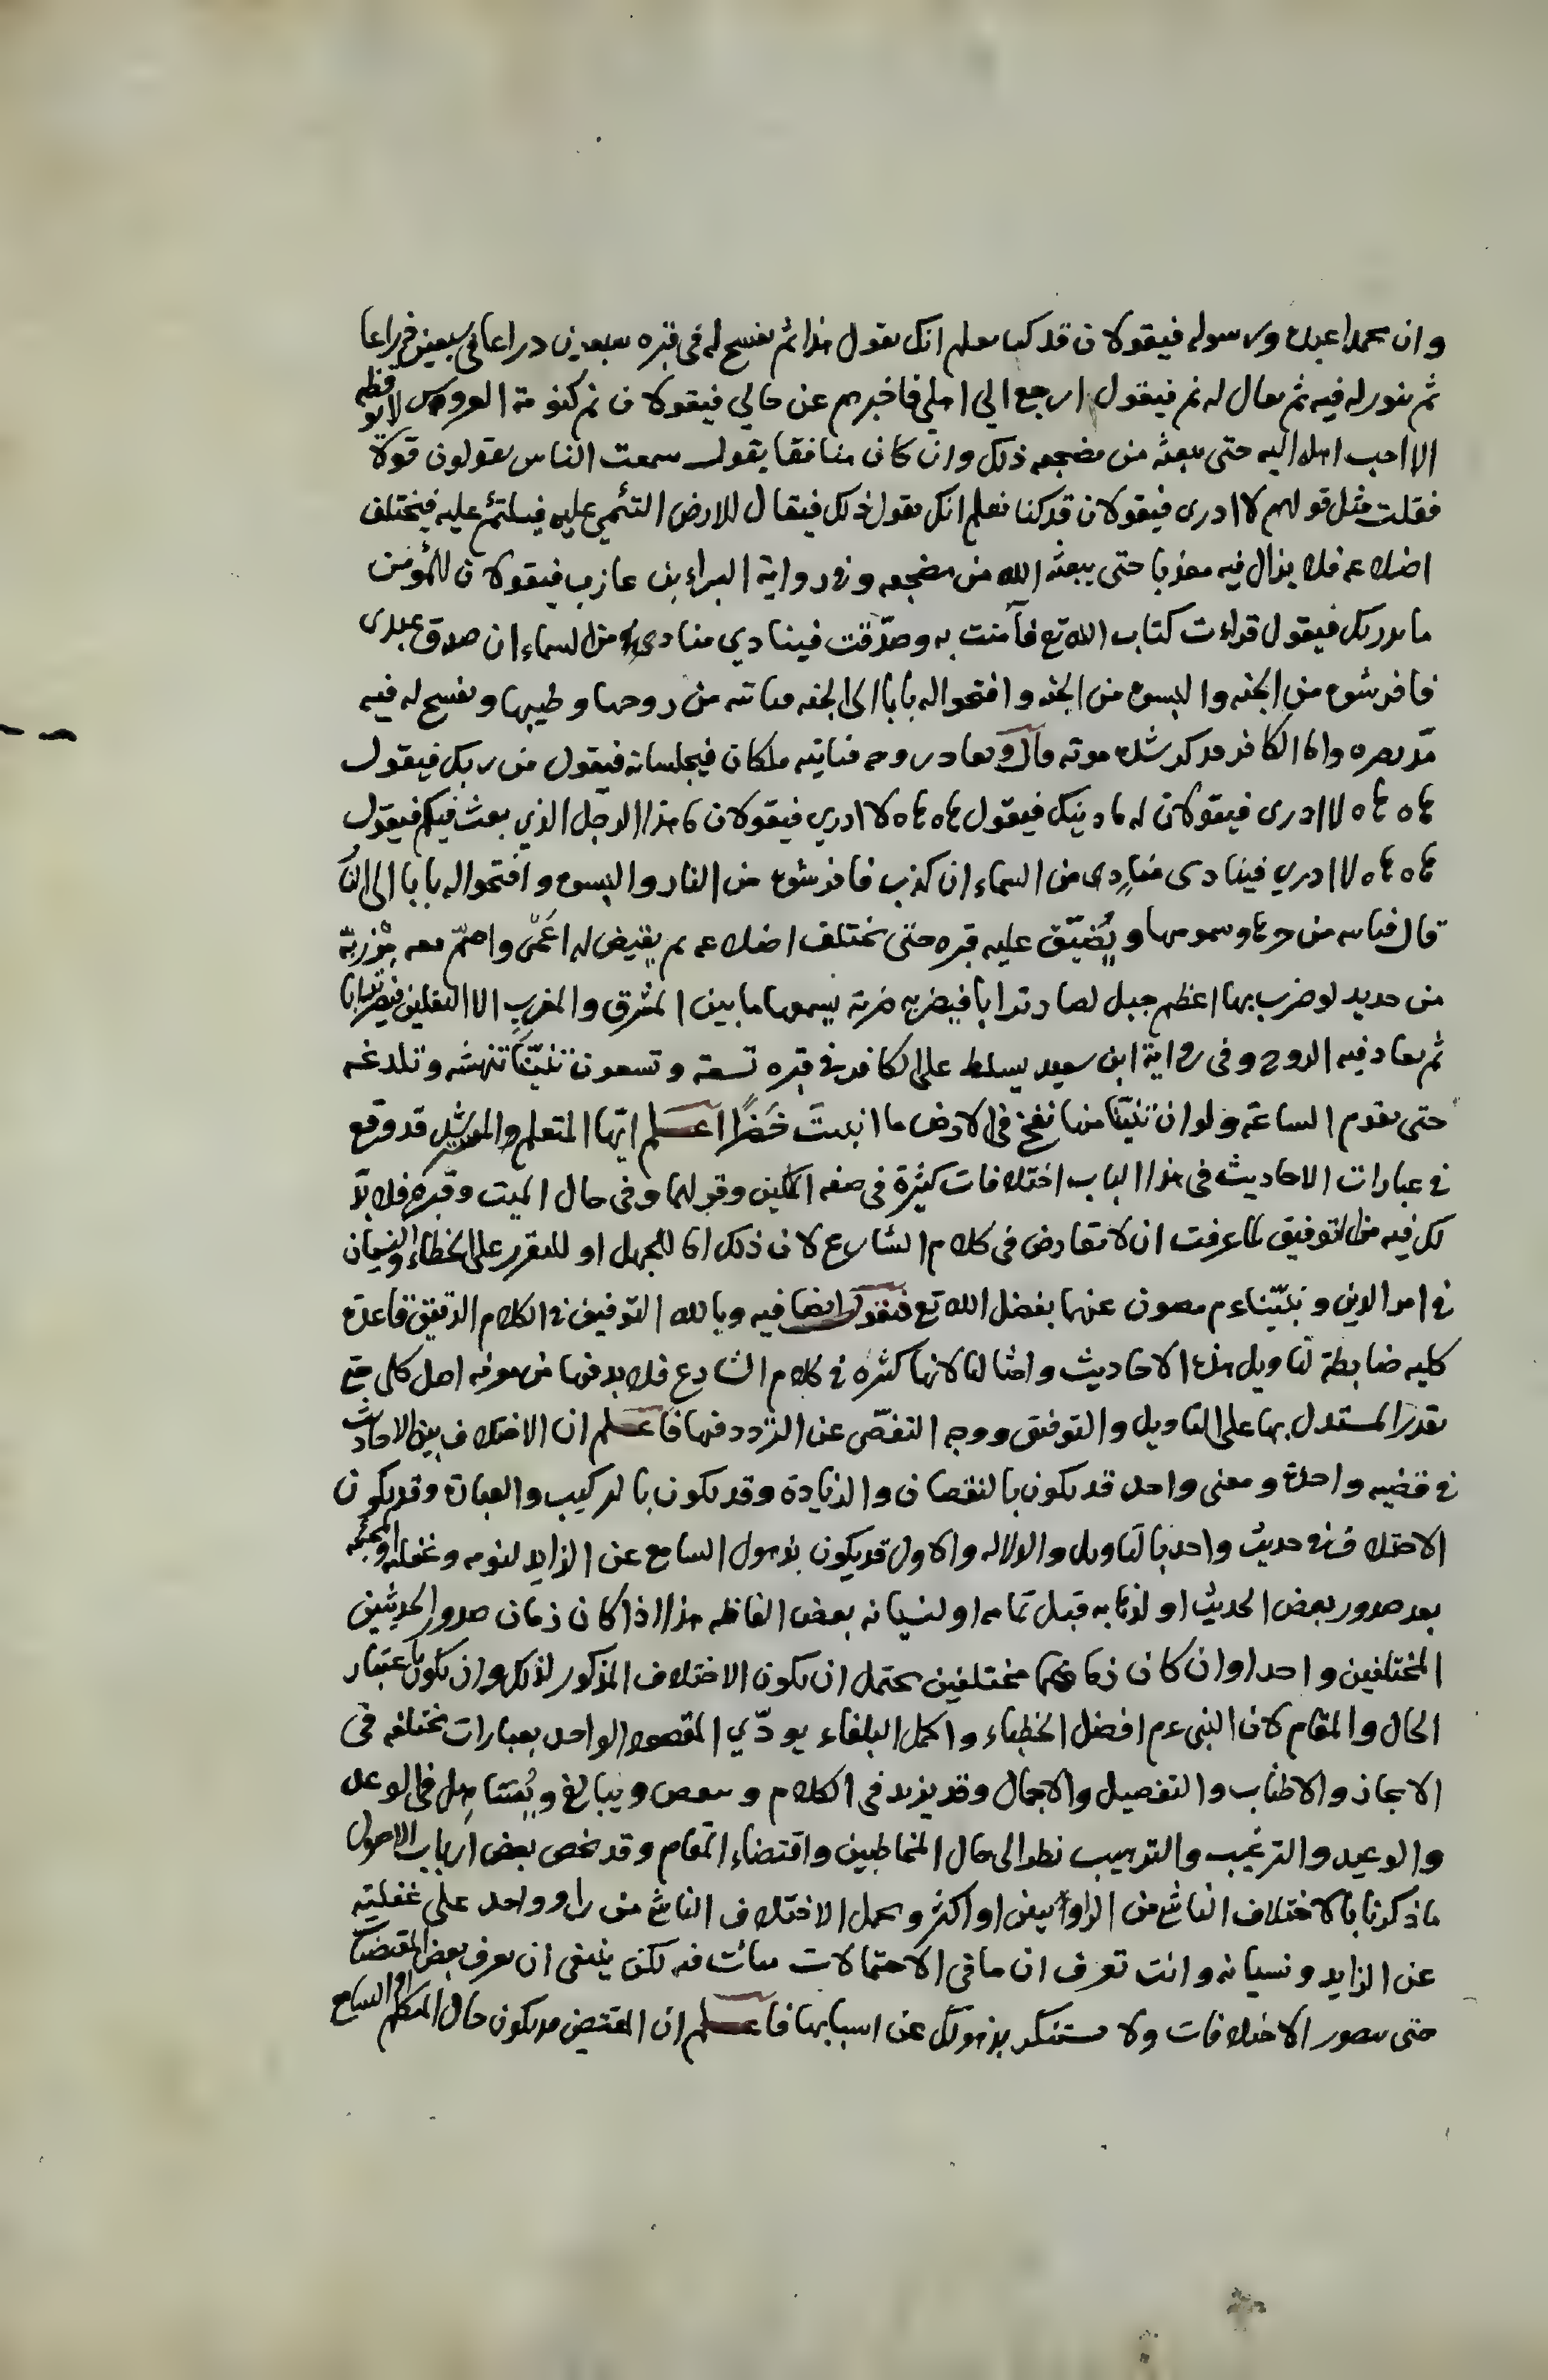 وان محمدا عبده ورسوله فيقولان قد كنا نعلم انك تقول هذا ثم يفسح له في قبره سبعين ذراعا في سبعين ذراعا
ثم ينور له فيه ثم يقال له نم فيقول ارجع الي اهلي فاخبرهم عن حالي فيقولان نم كنومة العروس لا يوقظه
الا احب اهله اليه حتى يبعثه من مضجعه ذلك وان كان منافقا يقول سمعت الناس يقولون قولا
فقلت مثل قولهم لا ادرى فيقولان قد كنا نعلم انك تقول ذلك فيقال للارض التئمي عليه فيلتئم عليه فيختلف
اضلاعه فلا يزال فيه معذبا حتى يبعثه الله من مضجعه وفي رواية البراء بن عازب فيقولان للمؤمن
ما يدريك فيقول قراءت كتاب الله تع فآمنت به وصدّقت فينادي منادى من السماء ان صدق عبدى
فافرشوه من الجنه والبسوه من الجنه وافتحوا له بابا الى الجنه فياتيه من روحها وطيبها ويفسح له فيه
مدّ بصره واما الكافر فذكر شدة موته قال ويعاد روحه فياتيه ملكان فيجلسانه فيقول من ربك فيقول
هاه هاه لا ادرى فيقولان له ما دينك فيقول هاه هاه لا ادري فيقولان ما هذا الرجل الذي بعث فيكم فيقول
هاه هاه لا ادري فينادى منادٍى من السماء ان كذب فافرشوه من النار والبسوه وافتحوا له بابا الى النا
قال فياتيه من حرها وسمومها ويُضيّق عليه قبره حتى تختلف اضلاعه ثم يقيض له اعمى واصمّ معه مرزبة
من حديد لو ضرب بها اعظم جبل لصار ترابا فيضربه ضربة يسمعها ما بين المشرق والمغرب الا الثقلين فيصير ترابا
ثم يعاد فيه الروح وفي رواية ابن سعيد يسلط على الكافر في قبره تسعة وتسعون تنيّنًا تنهشه وتلدغه
حتى يقوم الساعة ولو ان تنينا منها نفخ في الارض ما انبتت خَضرًا اعلم ايها المتعلم والمرشد قد وقع
في عبارات الاحاديث في هذا الباب اختلافات كثيرة في صفه الملكين وقولهما وفي حال الميت وقبره فلا بدّ
لك فيه من التوفيق لما عرفت ان لا تعارض في كلام الشارع لان ذلك اما للجهل او للتقرر على الخطاء والنسيان
في امر الدين ونبيّنا عم مصون عنهما بفضل الله تع فنقول ايضا فيه وبالله التوفيق في الكلام الدقيق قاعدة
كليه ضابطة لتاويل هذه الاحاديث وامثالها لانها كثيره في كلام الشارع فلا بد فيها من معرفه اصل كلى حتى
يقدر المستدل بها على التاويل والتوفيق ووجه التفصّى عن التردد فيها فاعلم ان الاختلاف بين الاحاديث
في قضيه واحدة ومعنى واحد قد يكون بالنقصان والزيادة وقد يكون بالتركيب والعبارة وقد يكون
الاختلاف في حديث واحد بالتاويل والدلاله والاول قد يكون بذهول السامع عن الزايد لنومه وغفلته او لمجيئه
بعد صدور بعض الحديث او لذهابه قبل تمامه او لنسيانه بعض الفاظه هذا اذا كان زمان صدور الحديثين
المختلفين واحدا وان كان زمانهما مختلفين يحتمل ان يكون الاختلاف المذكور لذلك وان يكون باعتبار
الحال والمقام لان النبى عم افضل الخطباء واكمل البلغاء يودّي المقصود الواحد بعبارات مختلفه في
الايجاز والاطناب والتفصيل والاجمال وقد يزيد في الكلام وينقص ويبالغ ويتساهل في الوعد
والوعيد والترغيب والترهيب نظرا الى حال المخاطبين واقتضاء المقام وقد خص بعض ارباب الاصول
ما ذكرنا بالاختلاف الناشى من الراويين او اكثر ويحمل الاختلاف الناشى من راو واحد على غفلته
عن الزايد ونسيانه وانت تعرف ان ما في الاحتمالات فيه لكن ينبغي ان يعرف بعض المقتضيات
حتى يتصور الاختلافات ولا يستنكر بذهولك عن اسبابها فاعلم ان المقتضى قد يكون حال المتكلم او السامع